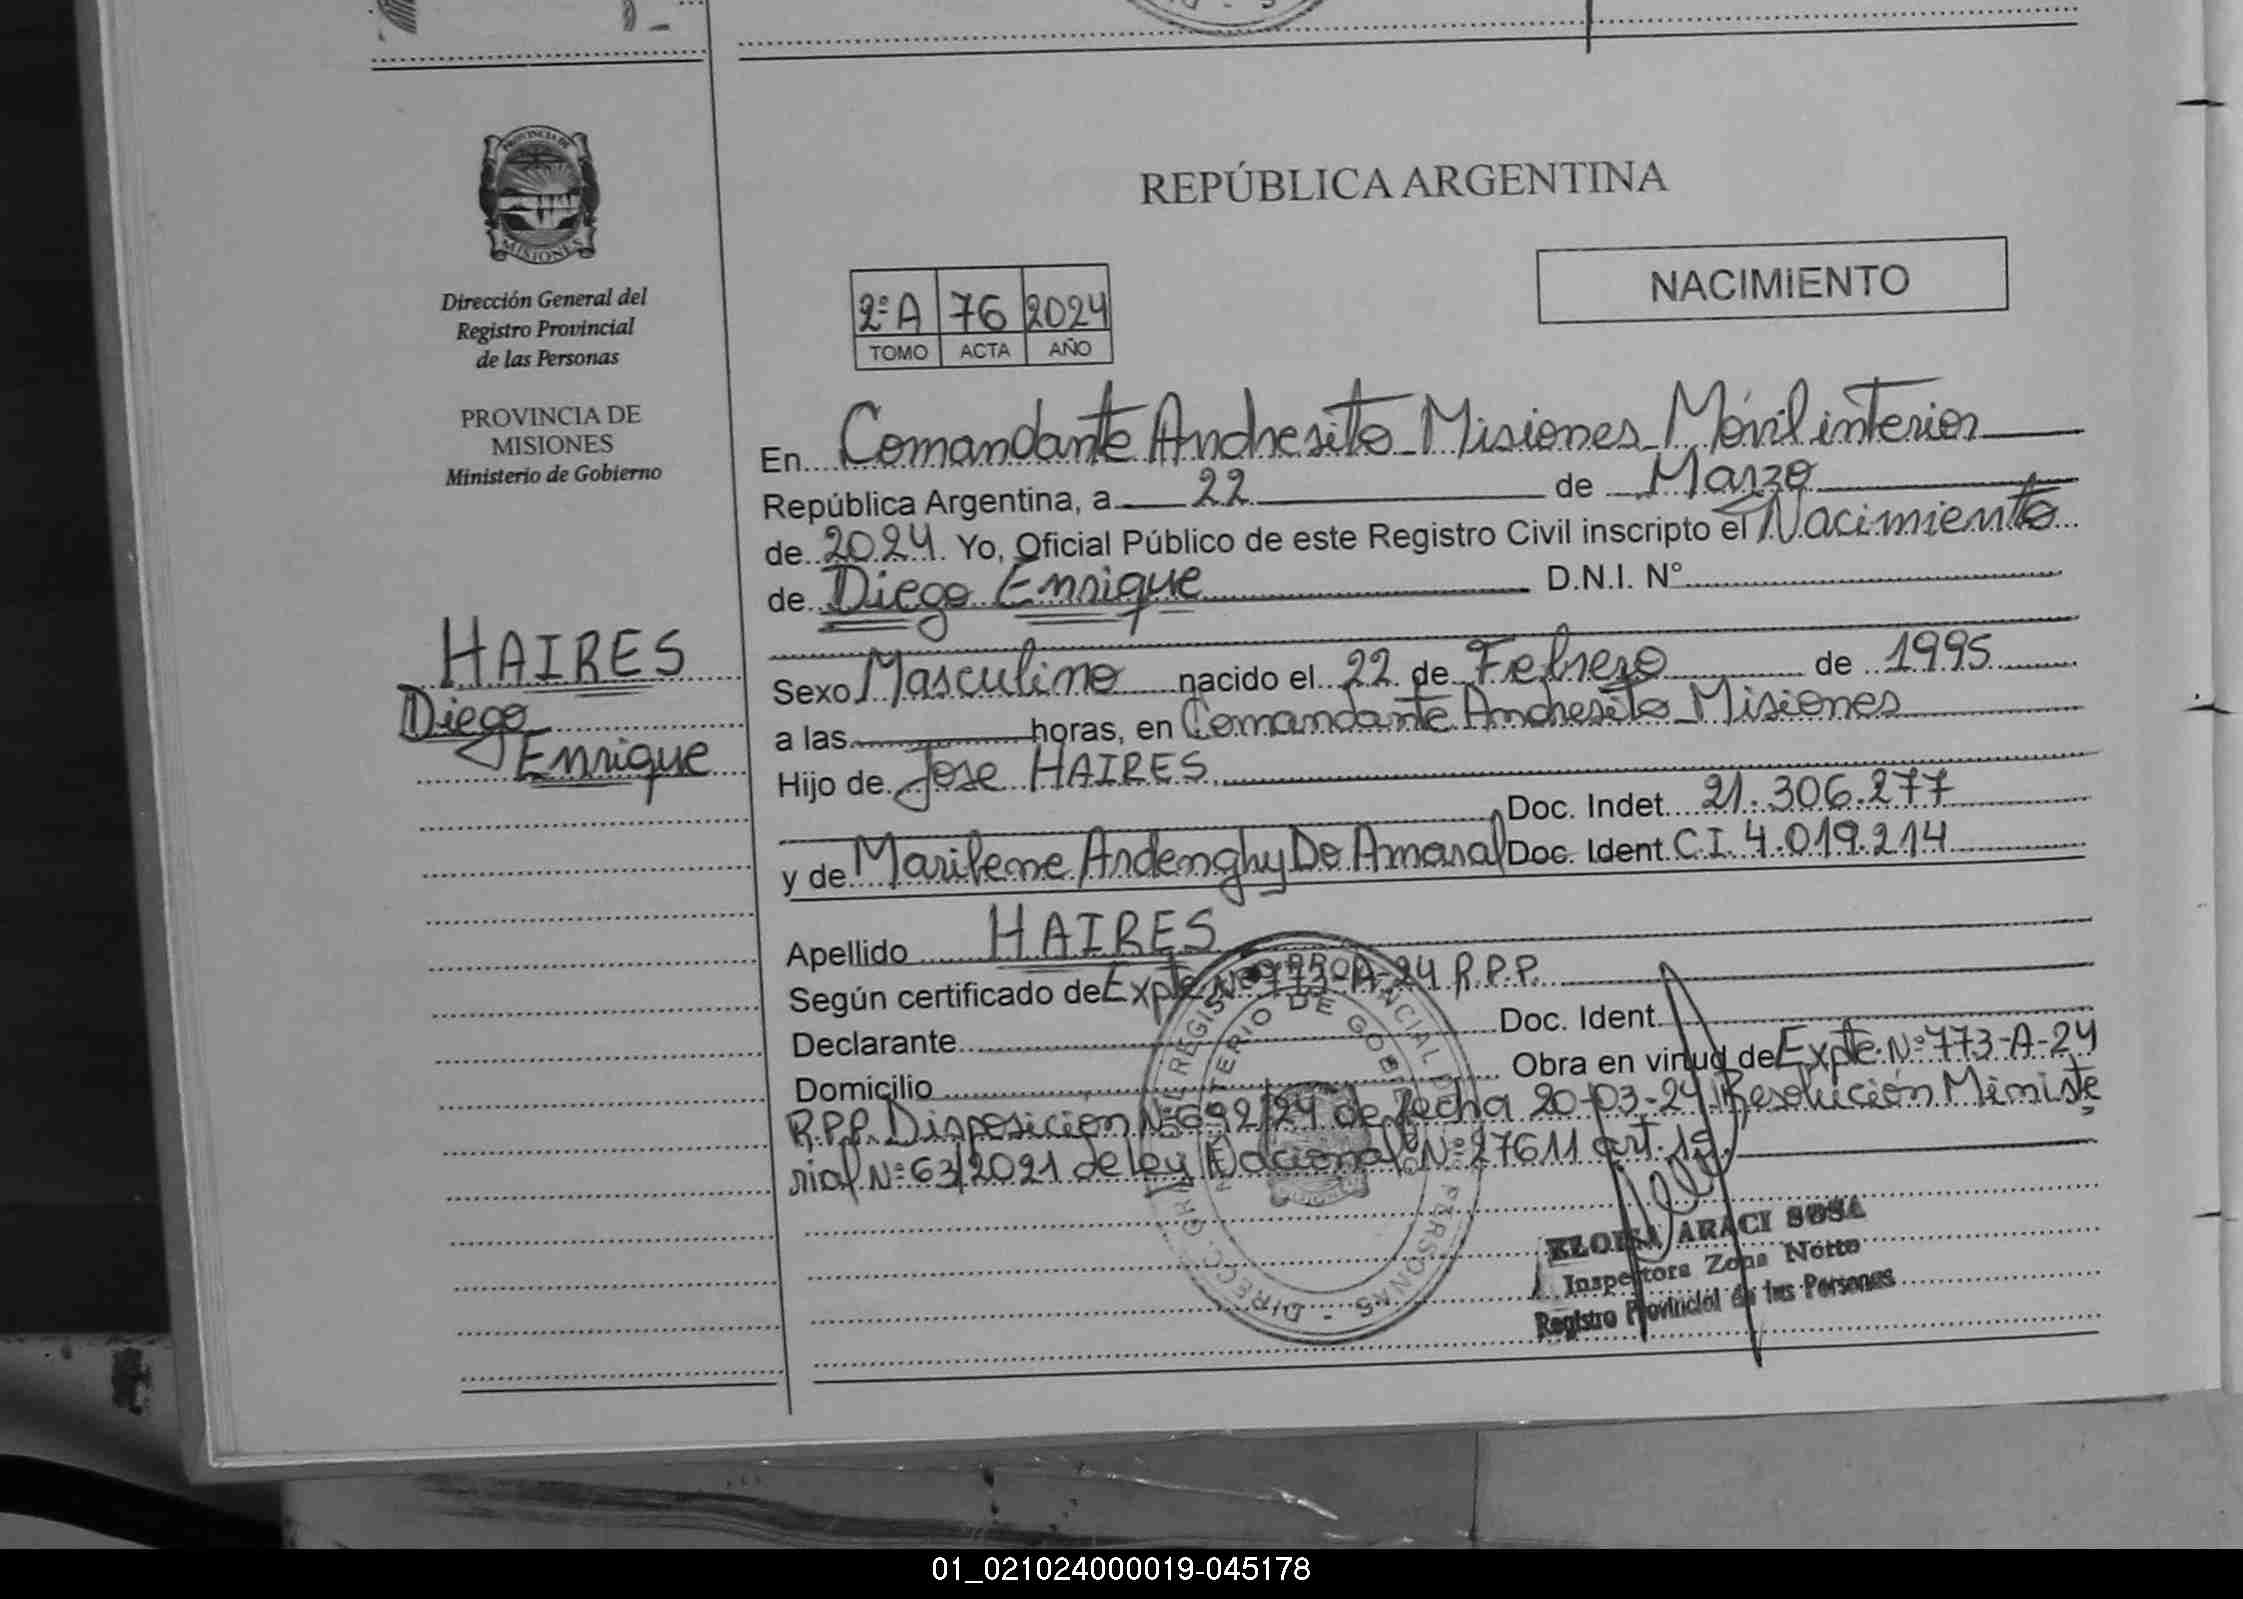 PROVINCIA DE
MISIONES
Dirección General del
Registro Provincial
de las Personas
PROVINCIA DE
MISIONES
Ministerio de Gobierno
HAIRES
Diego
Enrique
REPÚBLICA ARGENTINA
NACIMIENTO
2º A 76 2024
TOMO ACTA AÑO
En Comandante Andresito Misiones Móvil interior
República Argentina, a 22 de Marzo
de 2024. Yo, Oficial Público de este Registro Civil inscripto el Nacimiento
de Diego Enrique D.N.I. Nº
Sexo Masculino nacido el 22 de Febrero de 1995
a las horas, en Comandante Andresito Misiones
Hijo de Jose HAIRES
Doc. Indet. 21.306.277
y de Marilene Ardenghy Do Amaral Doc. Ident. C.I. 4.019.214
Apellido HAIRES
Según certificado de Expte Nº 773-A-24 R.P.P.
Declarante Doc. Ident.
Domicilio Obra en virtud de Expte. Nº 773-A-24
R.P.P. Disposicion Nº 692/24 de fecha 20-03-24. Resolución Ministe
rial Nº 63/2021 de ley Nacional Nº 27611 art. 19.
ELOISA ARACI SOSA
Inspectora Zona Norte
Registro Provincial de las Personas
01_021024000019-045178